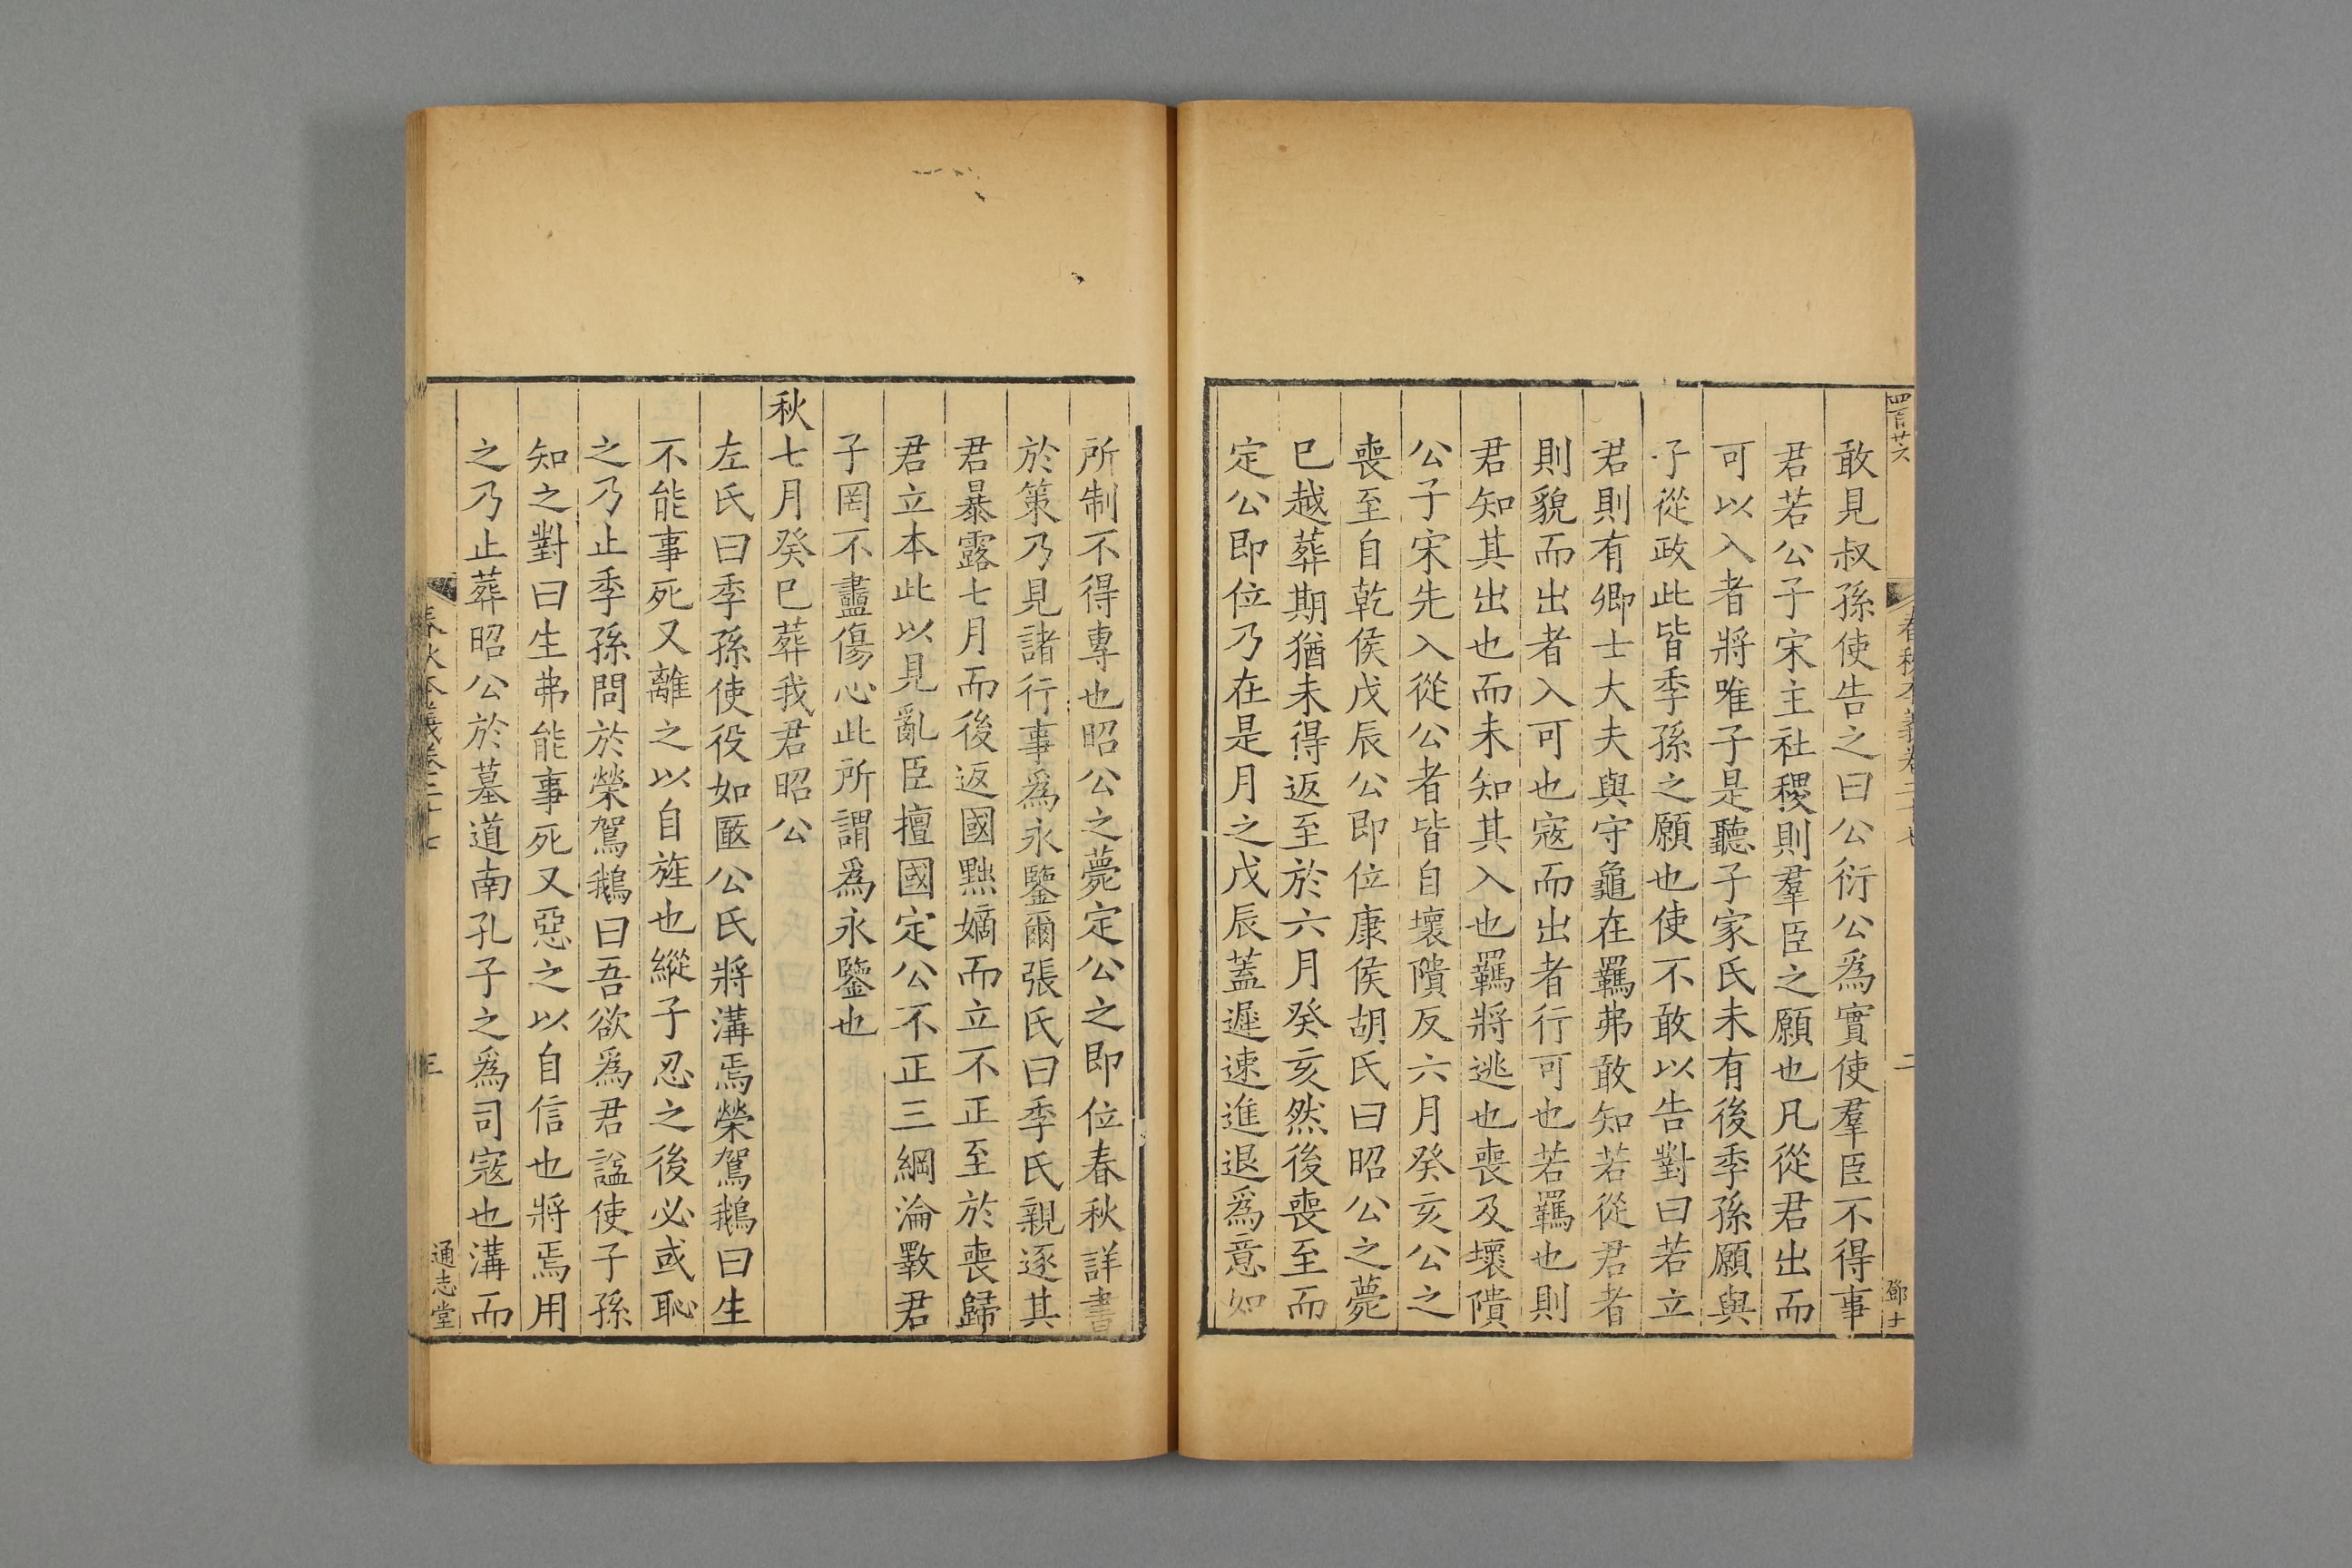 四百廿六
春秋本義卷二十七
二
鄧士
敢見叔孫使告之曰公衍公爲實使羣臣不得事
君若公子宋主社稷則羣臣之願也凡從君出而
可以入者將唯子是聽子家氏未有後季孫願與
子從政此皆季孫之願也使不敢以告對曰若立
君則有卿士大夫與守龜在羈弗敢知若從君者
則貌而出者入可也寇而出者行可也若羈也則
君知其出也而未知其入也羈將逃也喪及壞隤
公子宋先入從公者皆自壞隤反六月癸亥公之
喪至自乾侯戊辰公即位康侯胡氏曰昭公之薨
已越葬期猶未得返至於六月癸亥然後喪至而
定公即位乃在是月之戊辰蓋遲速進退爲意如
所制不得專也昭公之薨定公之即位春秋詳書
於策乃見諸行事爲永鑒爾張氏曰季氏親逐其
君暴露七月而後返國黜嫡而立不正至於喪歸
君立本此以見亂臣擅國定公不正三綱淪斁君
子罔不衋傷心此所謂爲永鑒也
秋七月癸巳葬我君昭公
左氏曰季孫使役如闞公氏將溝焉榮駕鵝曰生
不能事死又離之以自旌也縱子忍之後必或恥
之乃止季孫問於榮駕鵝曰吾欲爲君諡使子孫
知之對曰生弗能事死又惡之以自信也將焉用
之乃止葬昭公於墓道南孔子之爲司寇也溝而
春秋本義卷二十七
三
通志堂